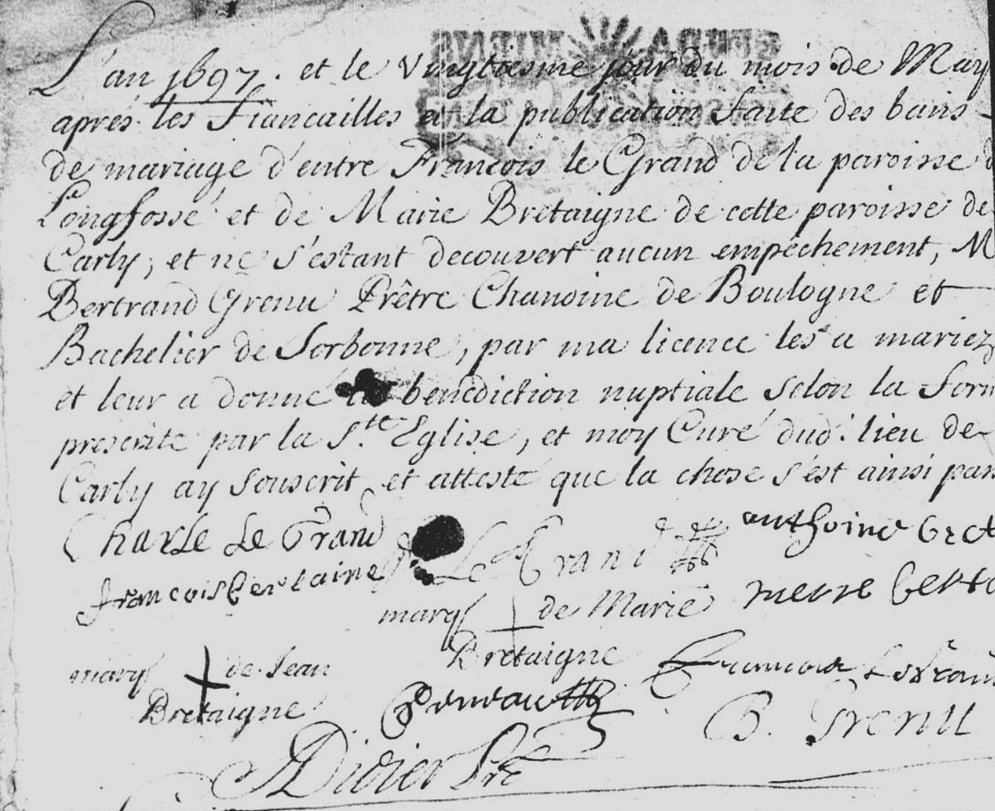 L'an 1697. et le Vingtiesme jour du mois de May
aprés les Fiancailles et la publication faite des bans
de mariage d'entre François le Grand de la paroisse
Longfossé et de Marie Bretaigne de cette paroisse de
Carly, et ne s'estant decouvert aucun empêchement, M
Bertrand Grenu Prêtre Chanoine de Boulogne et
Bachelier de Sorbonne, par ma licence les a mariez
et leur a donné la benediction nuptiale selon la form
prescrite par la S.te Eglise, et moy Curé dud. lieu de
Carly ay Souscrit et attesté que la chose s'est ainsi
Charle Le Grand
Le Grand
anthoine
françois bertaine
marq de Marie
Bretaigne
pierre
marq de Jean
Bretaigne
Le Gran
B. Grenu
Didier Pre